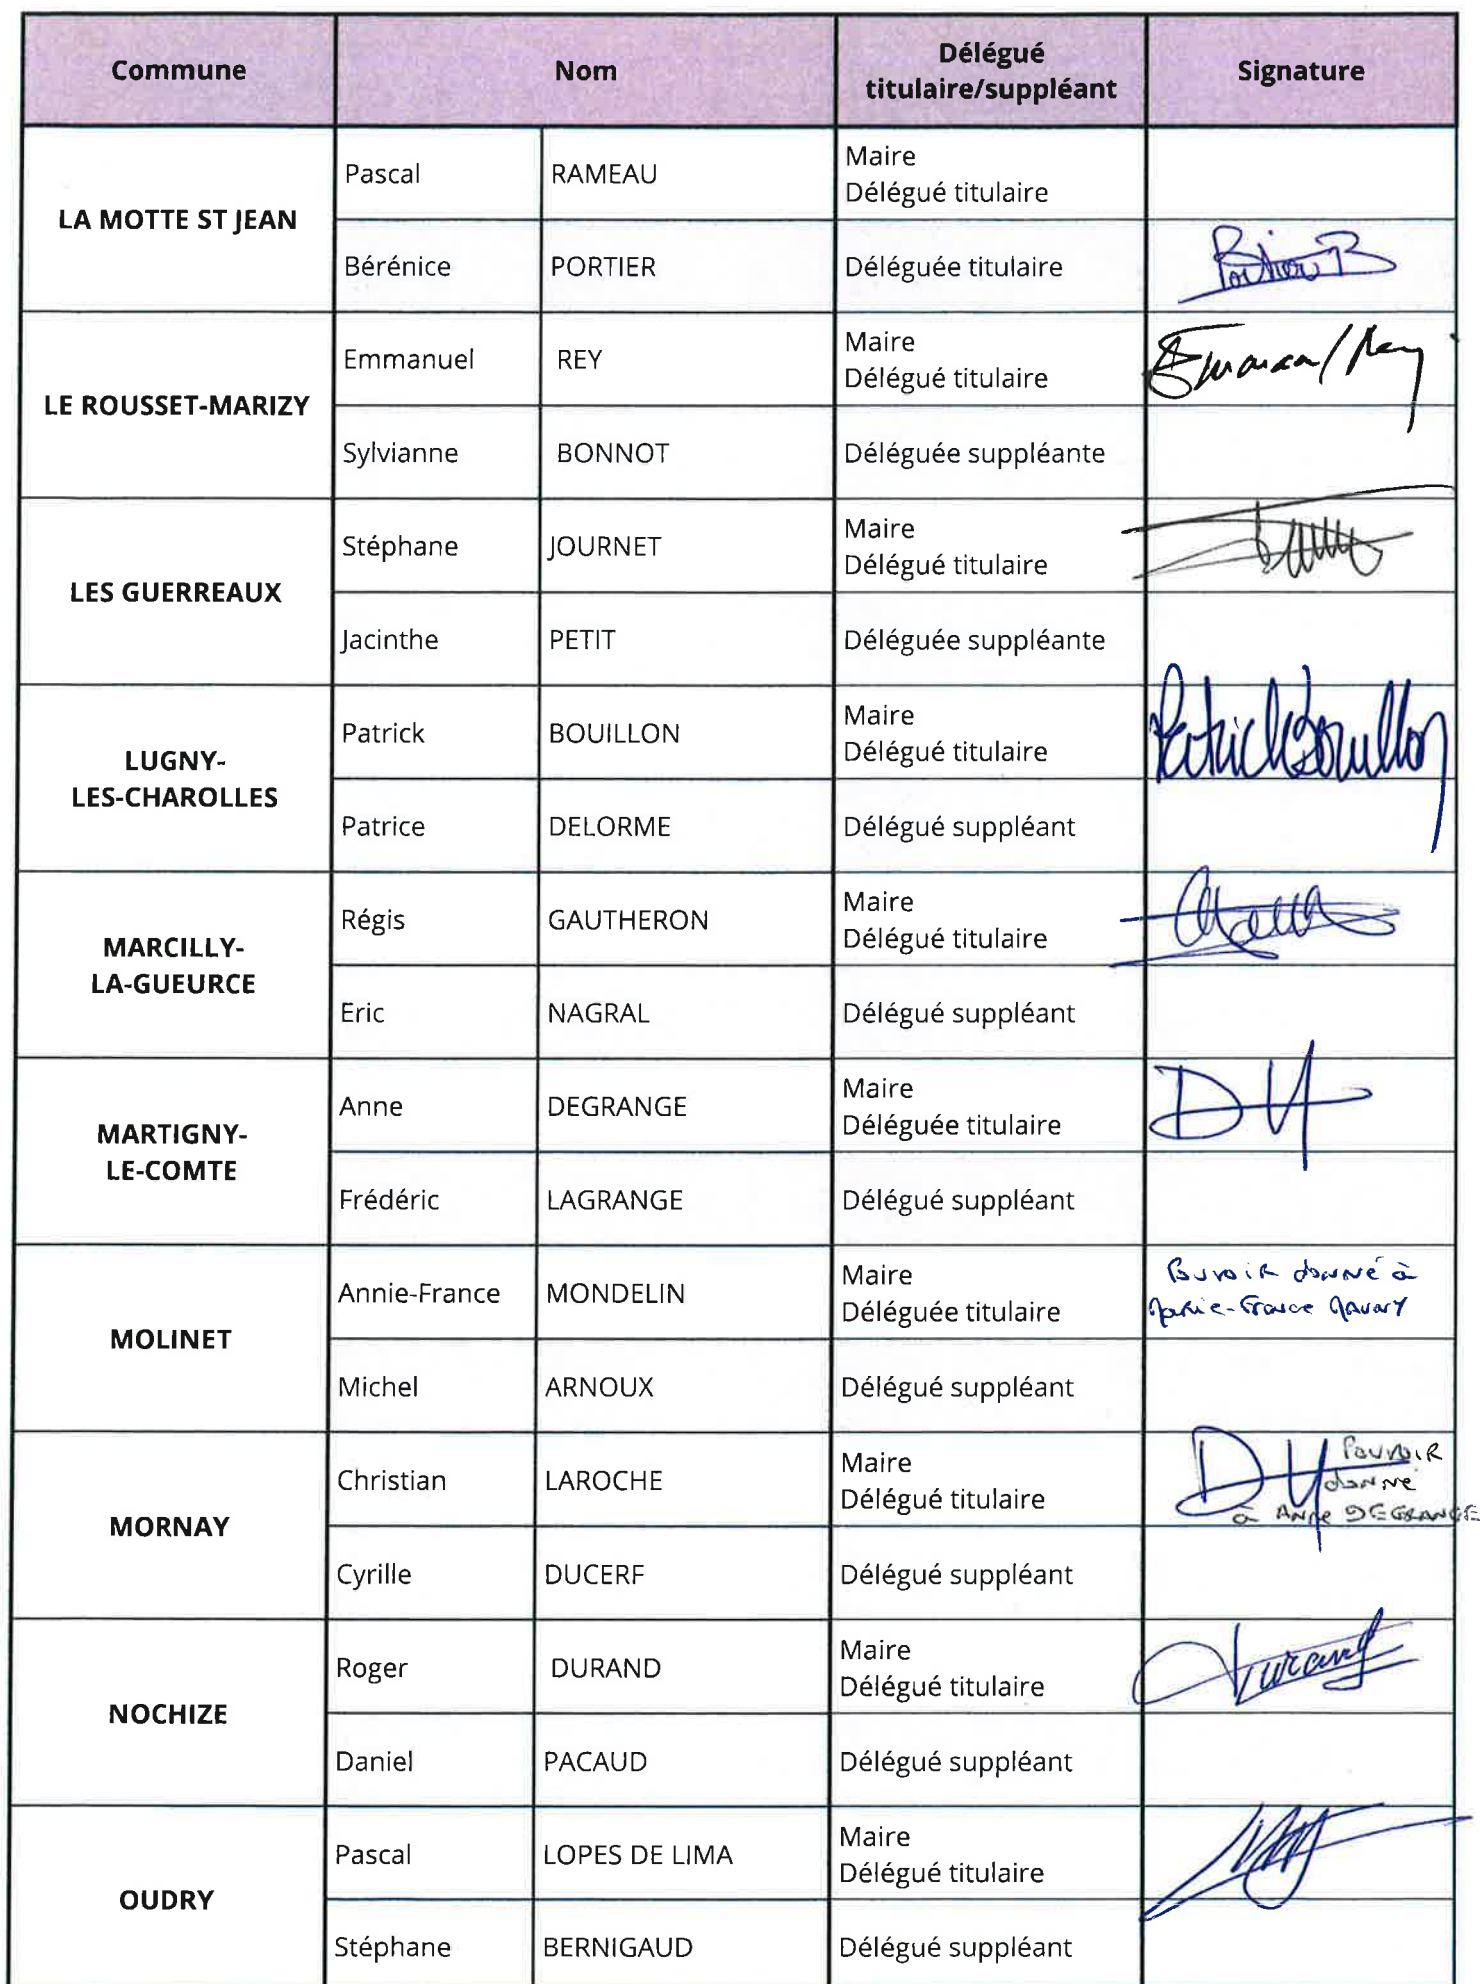 Commune Nom Délégué titulaire/suppléant Signature
LA MOTTE ST JEAN
Pascal RAMEAU Maire
Délégué titulaire
Bérénice PORTIER Déléguée titulaire Portier B
LE ROUSSET-MARIZY
Emmanuel REY Maire
Délégué titulaire
Sylvianne BONNOT Déléguée suppléante
LES GUERREAUX
Stéphane JOURNET Maire
Délégué titulaire
Jacinthe PETIT Déléguée suppléante
LUGNY-
LES-CHAROLLES
Patrick BOUILLON Maire
Délégué titulaire Patrick Bouillon
Patrice DELORME Délégué suppléant
MARCILLY-
LA-GUEURCE
Régis GAUTHERON Maire
Délégué titulaire
Eric NAGRAL Délégué suppléant
MARTIGNY-
LE-COMTE
Anne DEGRANGE Maire
Déléguée titulaire
Frédéric LAGRANGE Délégué suppléant
MOLINET
Annie-France MONDELIN Maire
Déléguée titulaire
Pouvoir donné à
Marie-France
Michel ARNOUX Délégué suppléant
MORNAY
Christian LAROCHE Maire
Délégué titulaire
Pouvoir
donné
à Anne DEGRANGE
Cyrille DUCERF Délégué suppléant
NOCHIZE
Roger DURAND Maire
Délégué titulaire Durand
Daniel PACAUD Délégué suppléant
OUDRY
Pascal LOPES DE LIMA Maire
Délégué titulaire
Stéphane BERNIGAUD Délégué suppléant